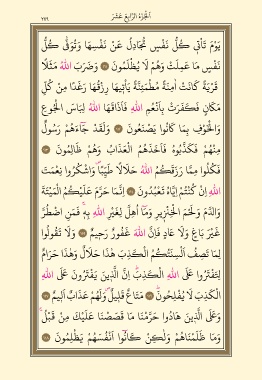 الجزء الرابع عشر
٢٧٩
يَوْمَ تَأْتِي كُلُّ نَفْسٍ تُجَادِلُ عَنْ نَفْسِهَا وَتُوَفَّى كُلُّ
نَفْسٍ مَا عَمِلَتْ وَهُمْ لَا يُظْلَمُونَ ۝ وَضَرَبَ اللّٰهُ مَثَلًا
قَرْيَةً كَانَتْ اٰمِنَةً مُطْمَئِنَّةً يَأْتِيهَا رِزْقُهَا رَغَدًا مِنْ كُلِّ
مَكَانٍ فَكَفَرَتْ بِاَنْعُمِ اللّٰهِ فَاَذَاقَهَا اللّٰهُ لِبَاسَ الْجُوعِ
وَالْخَوْفِ بِمَا كَانُوا يَصْنَعُونَ ۝ وَلَقَدْ جَاءَهُمْ رَسُولٌ
مِنْهُمْ فَكَذَّبُوهُ فَاَخَذَهُمُ الْعَذَابُ وَهُمْ ظَالِمُونَ ۝
فَكُلُوا مِمَّا رَزَقَكُمُ اللّٰهُ حَلَالًا طَيِّبًا وَاشْكُرُوا نِعْمَتَ
اللّٰهِ اِنْ كُنْتُمْ اِيَّاهُ تَعْبُدُونَ ۝ اِنَّمَا حَرَّمَ عَلَيْكُمُ الْمَيْتَةَ
وَالدَّمَ وَلَحْمَ الْخِنْزِيرِ وَمَا اُهِلَّ لِغَيْرِ اللّٰهِ بِهِ فَمَنِ اضْطُرَّ
غَيْرَ بَاغٍ وَلَا عَادٍ فَاِنَّ اللّٰهَ غَفُورٌ رَحِيمٌ ۝ وَلَا تَقُولُوا
لِمَا تَصِفُ اَلْسِنَتُكُمُ الْكَذِبَ هٰذَا حَلَالٌ وَهٰذَا حَرَامٌ
لِتَفْتَرُوا عَلَى اللّٰهِ الْكَذِبَ اِنَّ الَّذِينَ يَفْتَرُونَ عَلَى اللّٰهِ
الْكَذِبَ لَا يُفْلِحُونَ ۝ مَتَاعٌ قَلِيلٌ وَلَهُمْ عَذَابٌ اَلِيمٌ ۝
وَعَلَى الَّذِينَ هَادُوا حَرَّمْنَا مَا قَصَصْنَا عَلَيْكَ مِنْ قَبْلُ
وَمَا ظَلَمْنَاهُمْ وَلٰكِنْ كَانُوا اَنْفُسَهُمْ يَظْلِمُونَ ۝